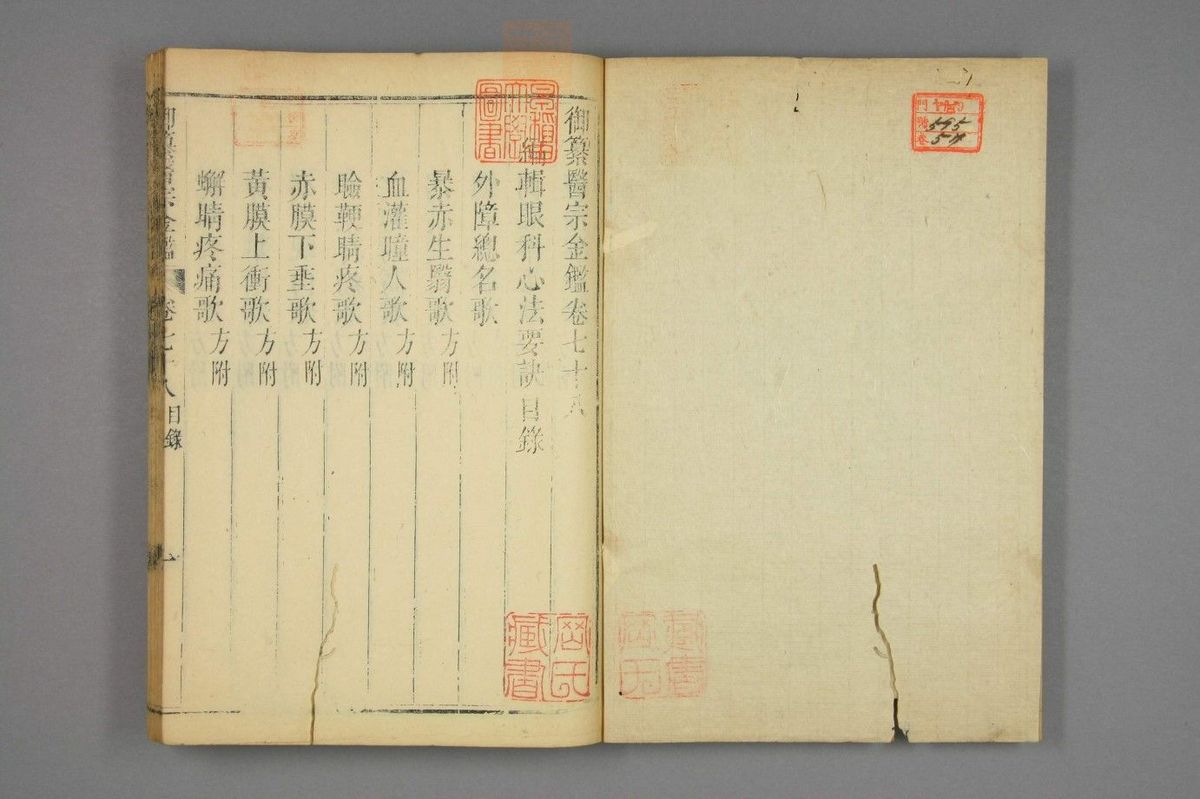 門
號 595
卷 54
御纂醫宗金鑑卷七十八
編輯眼科心法要訣目錄
外障總名歌
暴赤生翳歌方附
血灌瞳人歌方附
瞼鞕睛疼歌方附
赤膜下垂歌方附
黃膜上衝歌方附
蠏睛疼痛歌方附
御纂醫宗金鑑 卷七十八目錄 一
早稻田大學圖書
岱氏藏書